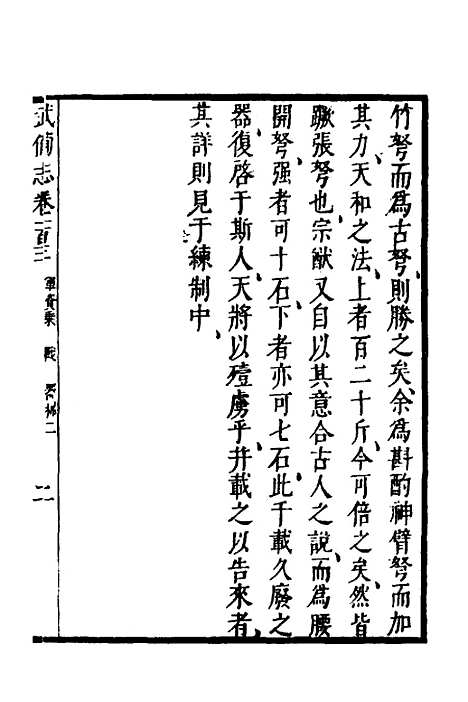 竹弩而爲古弩則勝之矣余爲斟酌神臂弩而加
其力天和之法上者百二十斤今可倍之矣然皆
蹶張弩也宗猷又自以其意合古人之說而爲腰
開弩强者可十石下者亦可七石此千載久廢之
器復啓于斯人天將以殪虜乎幷載之以告來者
其詳則見于練制中
武備志卷一百三 軍資乘 戰 器械二 二